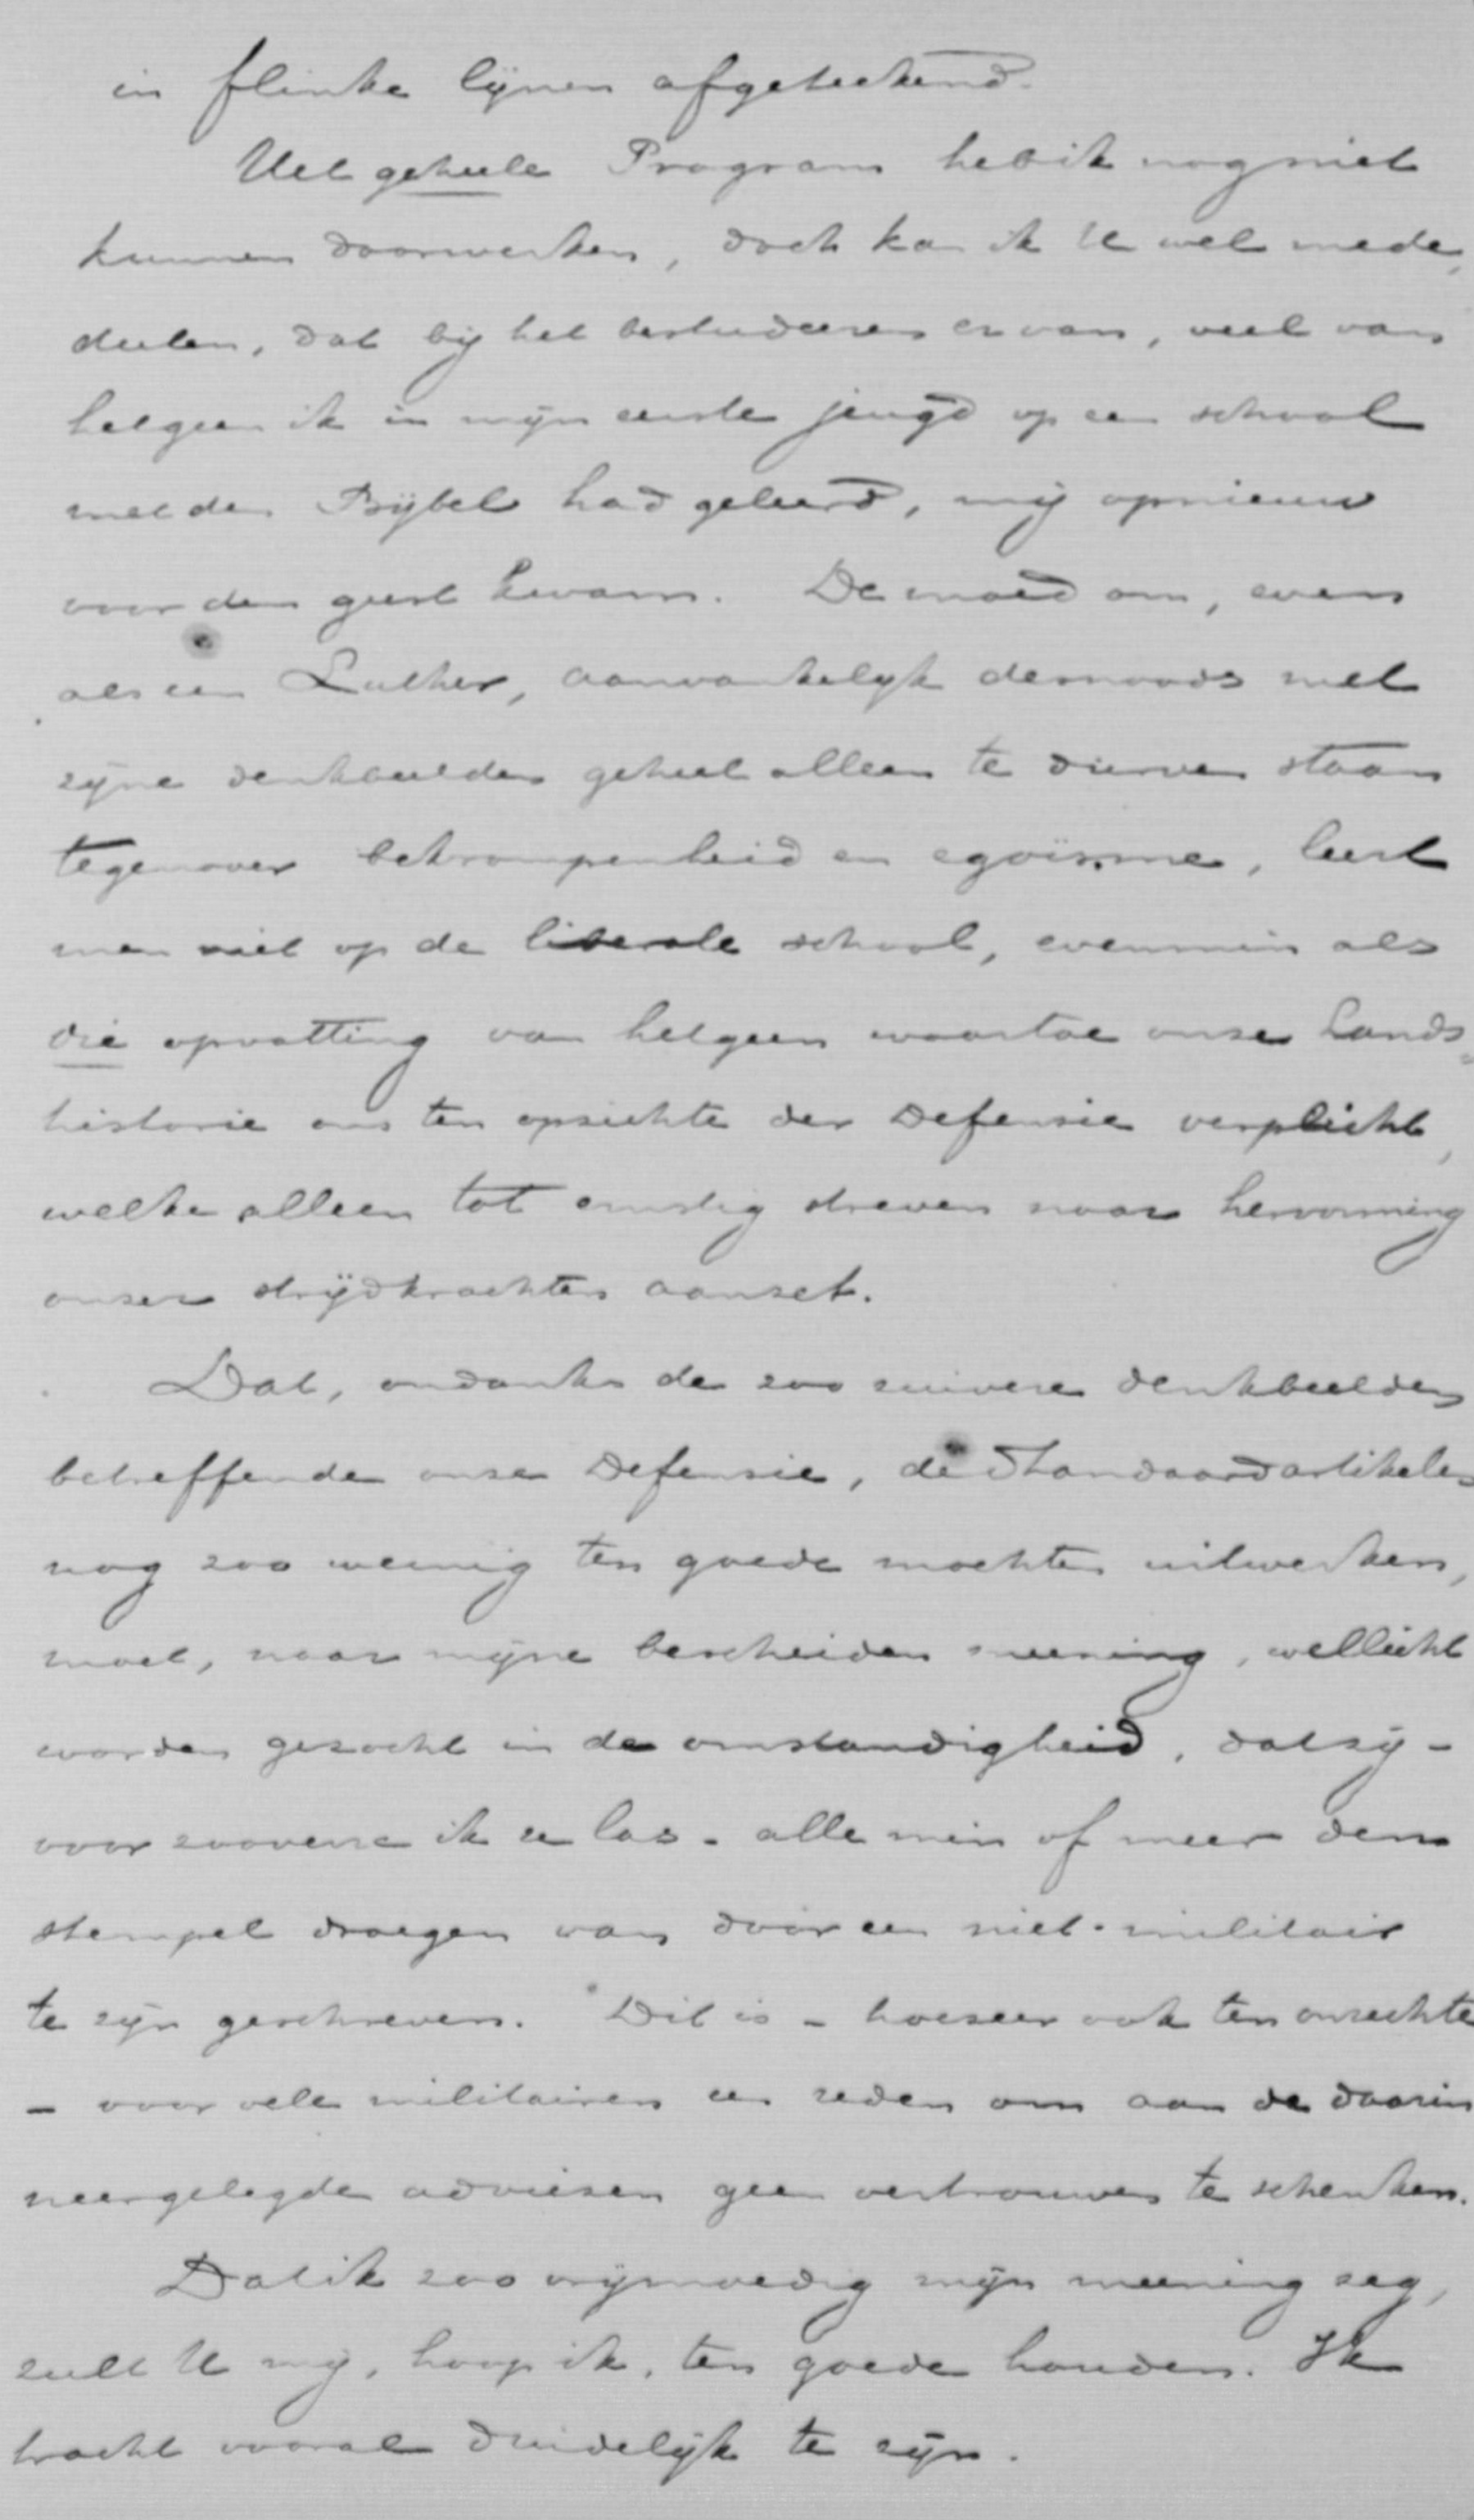 in flinke lijnen afgeteekend.
Het geheele Program heb ik nog niet
kunnen doorwerken, doch kan ik U wel mede,
deelen, dat bij het bestudeeren ervan, veel van
hetgeen ik in mijn eerste jeugd op een school
met den Bijbel had geleerd, mij opnieuw
voor den geest kwam. De moed om, even
als een Luther, aanvankelijk desnoods met
zijne denkbeelden geheel alleen te durven staan
tegenover bekrompenheid en egoïsme, leert
men niet op de liberale school, evenmin als
die opvatting van hetgeen waartoe onze Lands=
historie ons ten opzichte der Defensie verplicht,
welke alleen tot ernstig streven naar hervorming
onzer strijdkrachten aanzet.
Dat, ondanks de zoo zuivere denkbeelden
betreffende onze Defensie, de Standaardartikelen
nog zoo weinig ten goede mochten uitwerken,
moet, naar mijne bescheiden meening, wellicht
worden gezocht in de omstandigheid, dat zij -
voor zooverre ik ze las - alle min of meer den
stempel draegen van door een niet-militair
te zijn geschreven. Dit is - hoezeer ook ten onrechte
- voor vele militairen een reden om aan de daarin
neergelegde adviezen geen vertrouwen te schenken.
Dat ik zoo vrijmoedig mijn meening zeg,
zult U mij, hoop ik, ten goede houden. Ik
tracht vooral duidelijk te zijn.